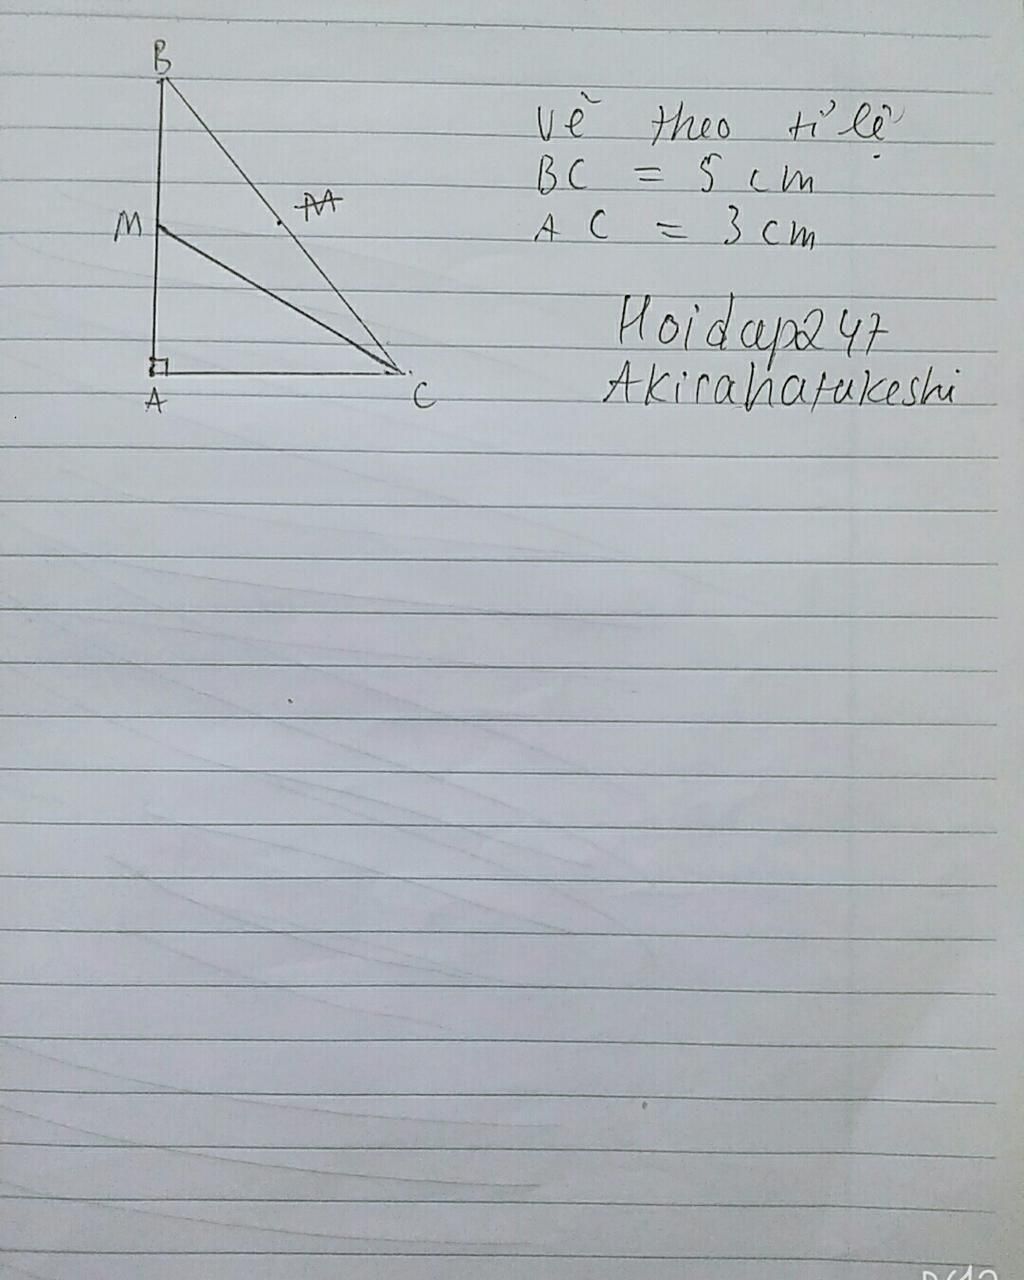 B
Vẽ theo tỉ lệ
BC = 5 cm
M
M
AC = 3 cm
Hoidap247
A
C
Akirahatakeshi